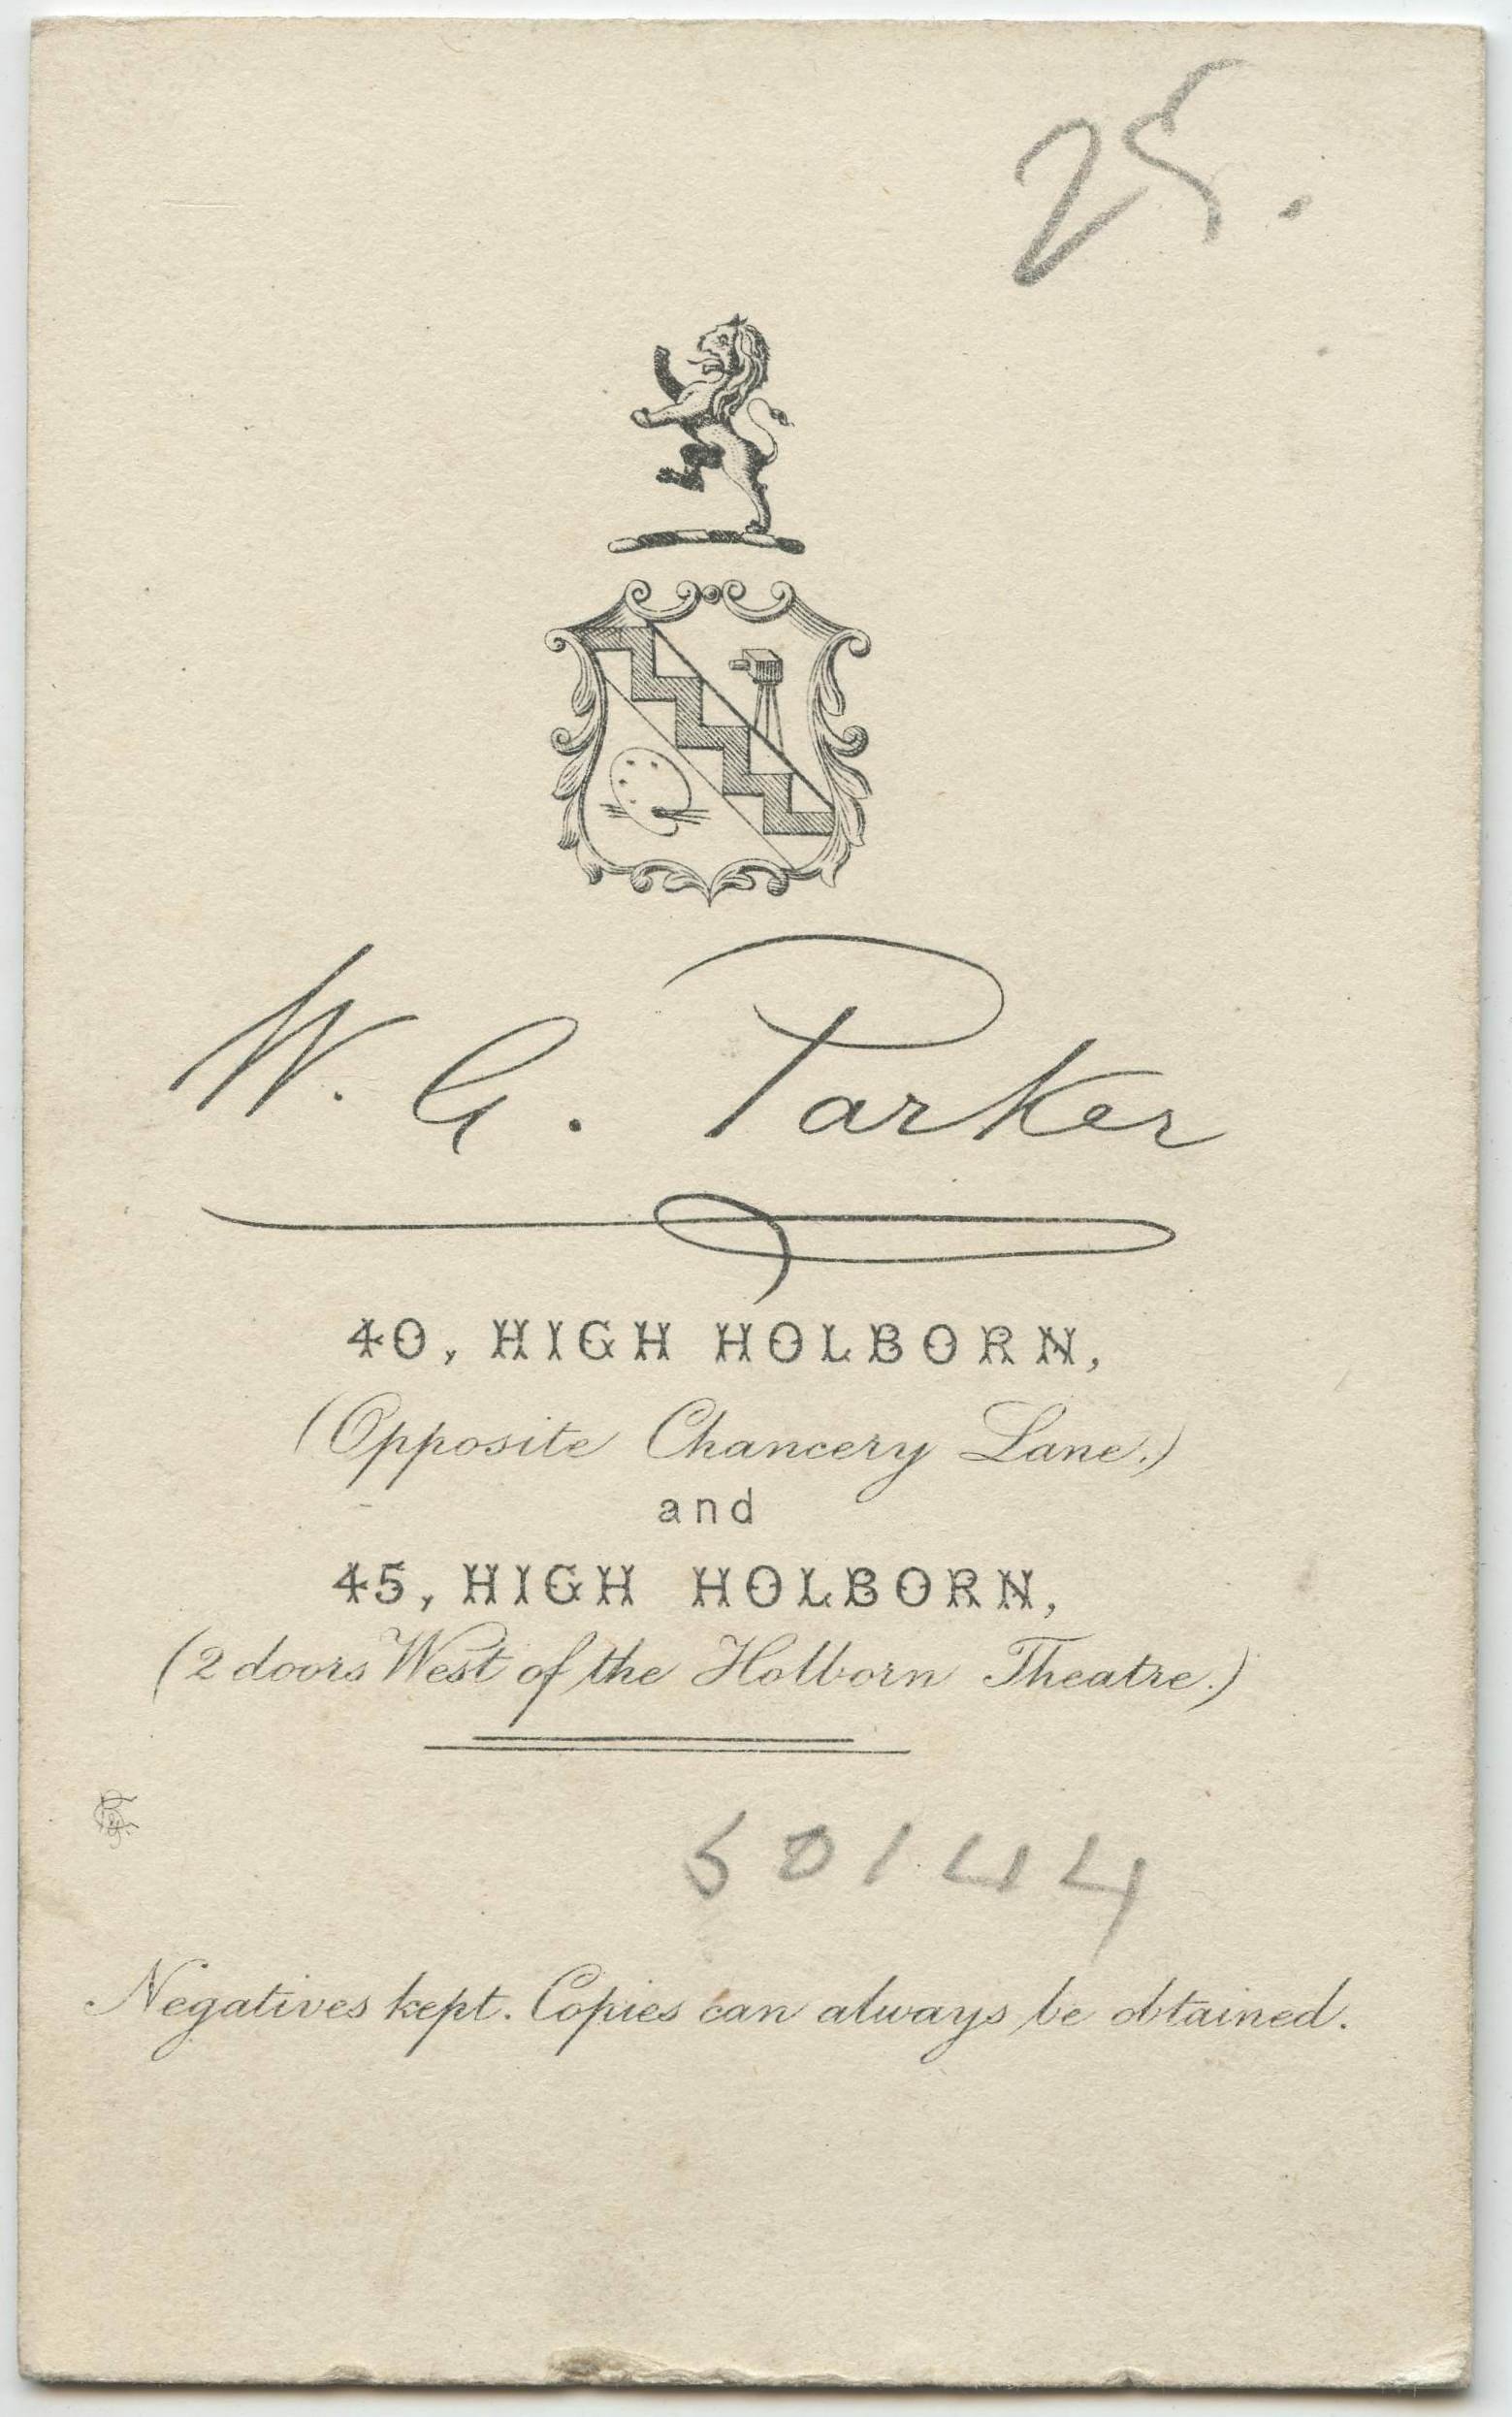 25.
W. G. Parker
40, HIGH HOLBORN,
(Opposite Chancery Lane.)
and
45, HIGH HOLBORN,
(2 doors West of the Holborn Theatre.)
50144
Negatives kept. Copies can always be obtained.